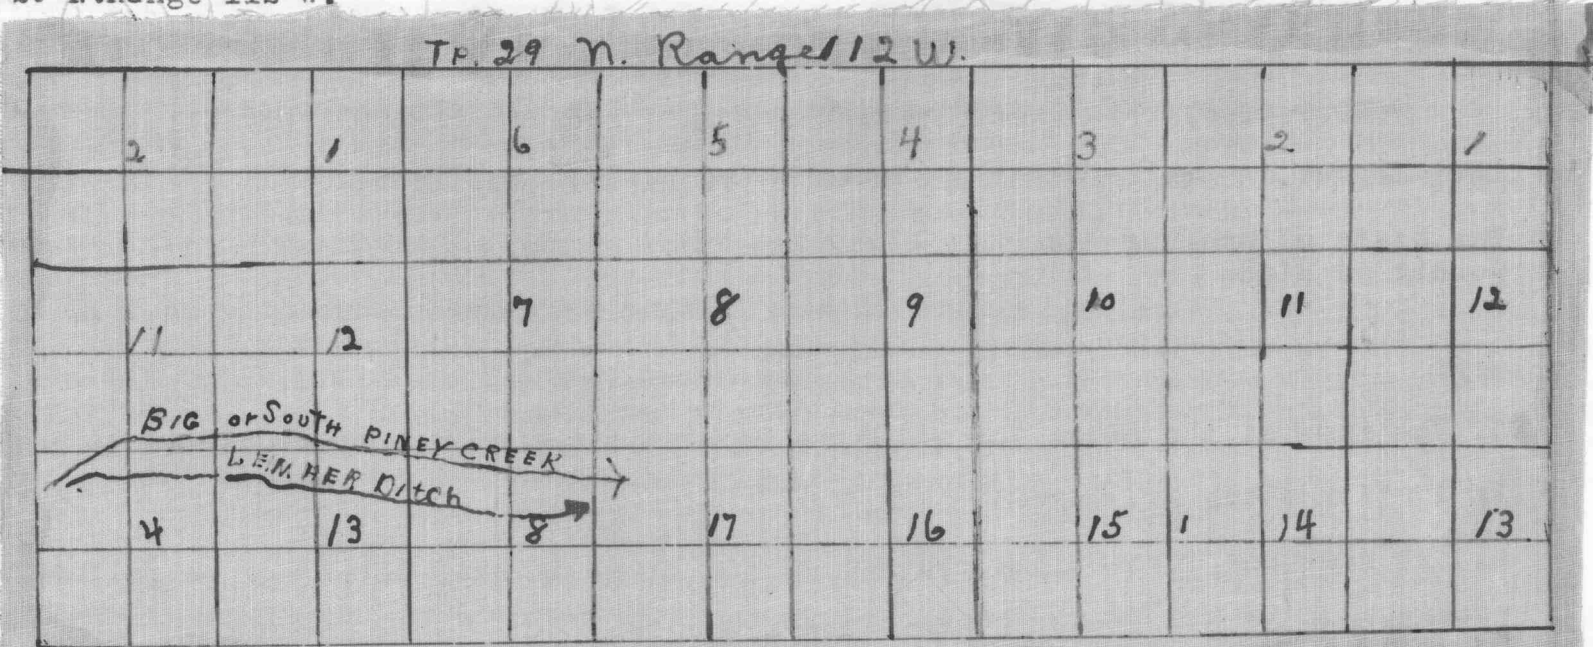 Tp. 29 N. Range 112 W.
2 1 6 5 4 3 2 1
11 12 7 8 9 10 11 12
BIG or SOUTH PINEY CREEK
Ditch
4 13 8 17 16 15 1 14 13